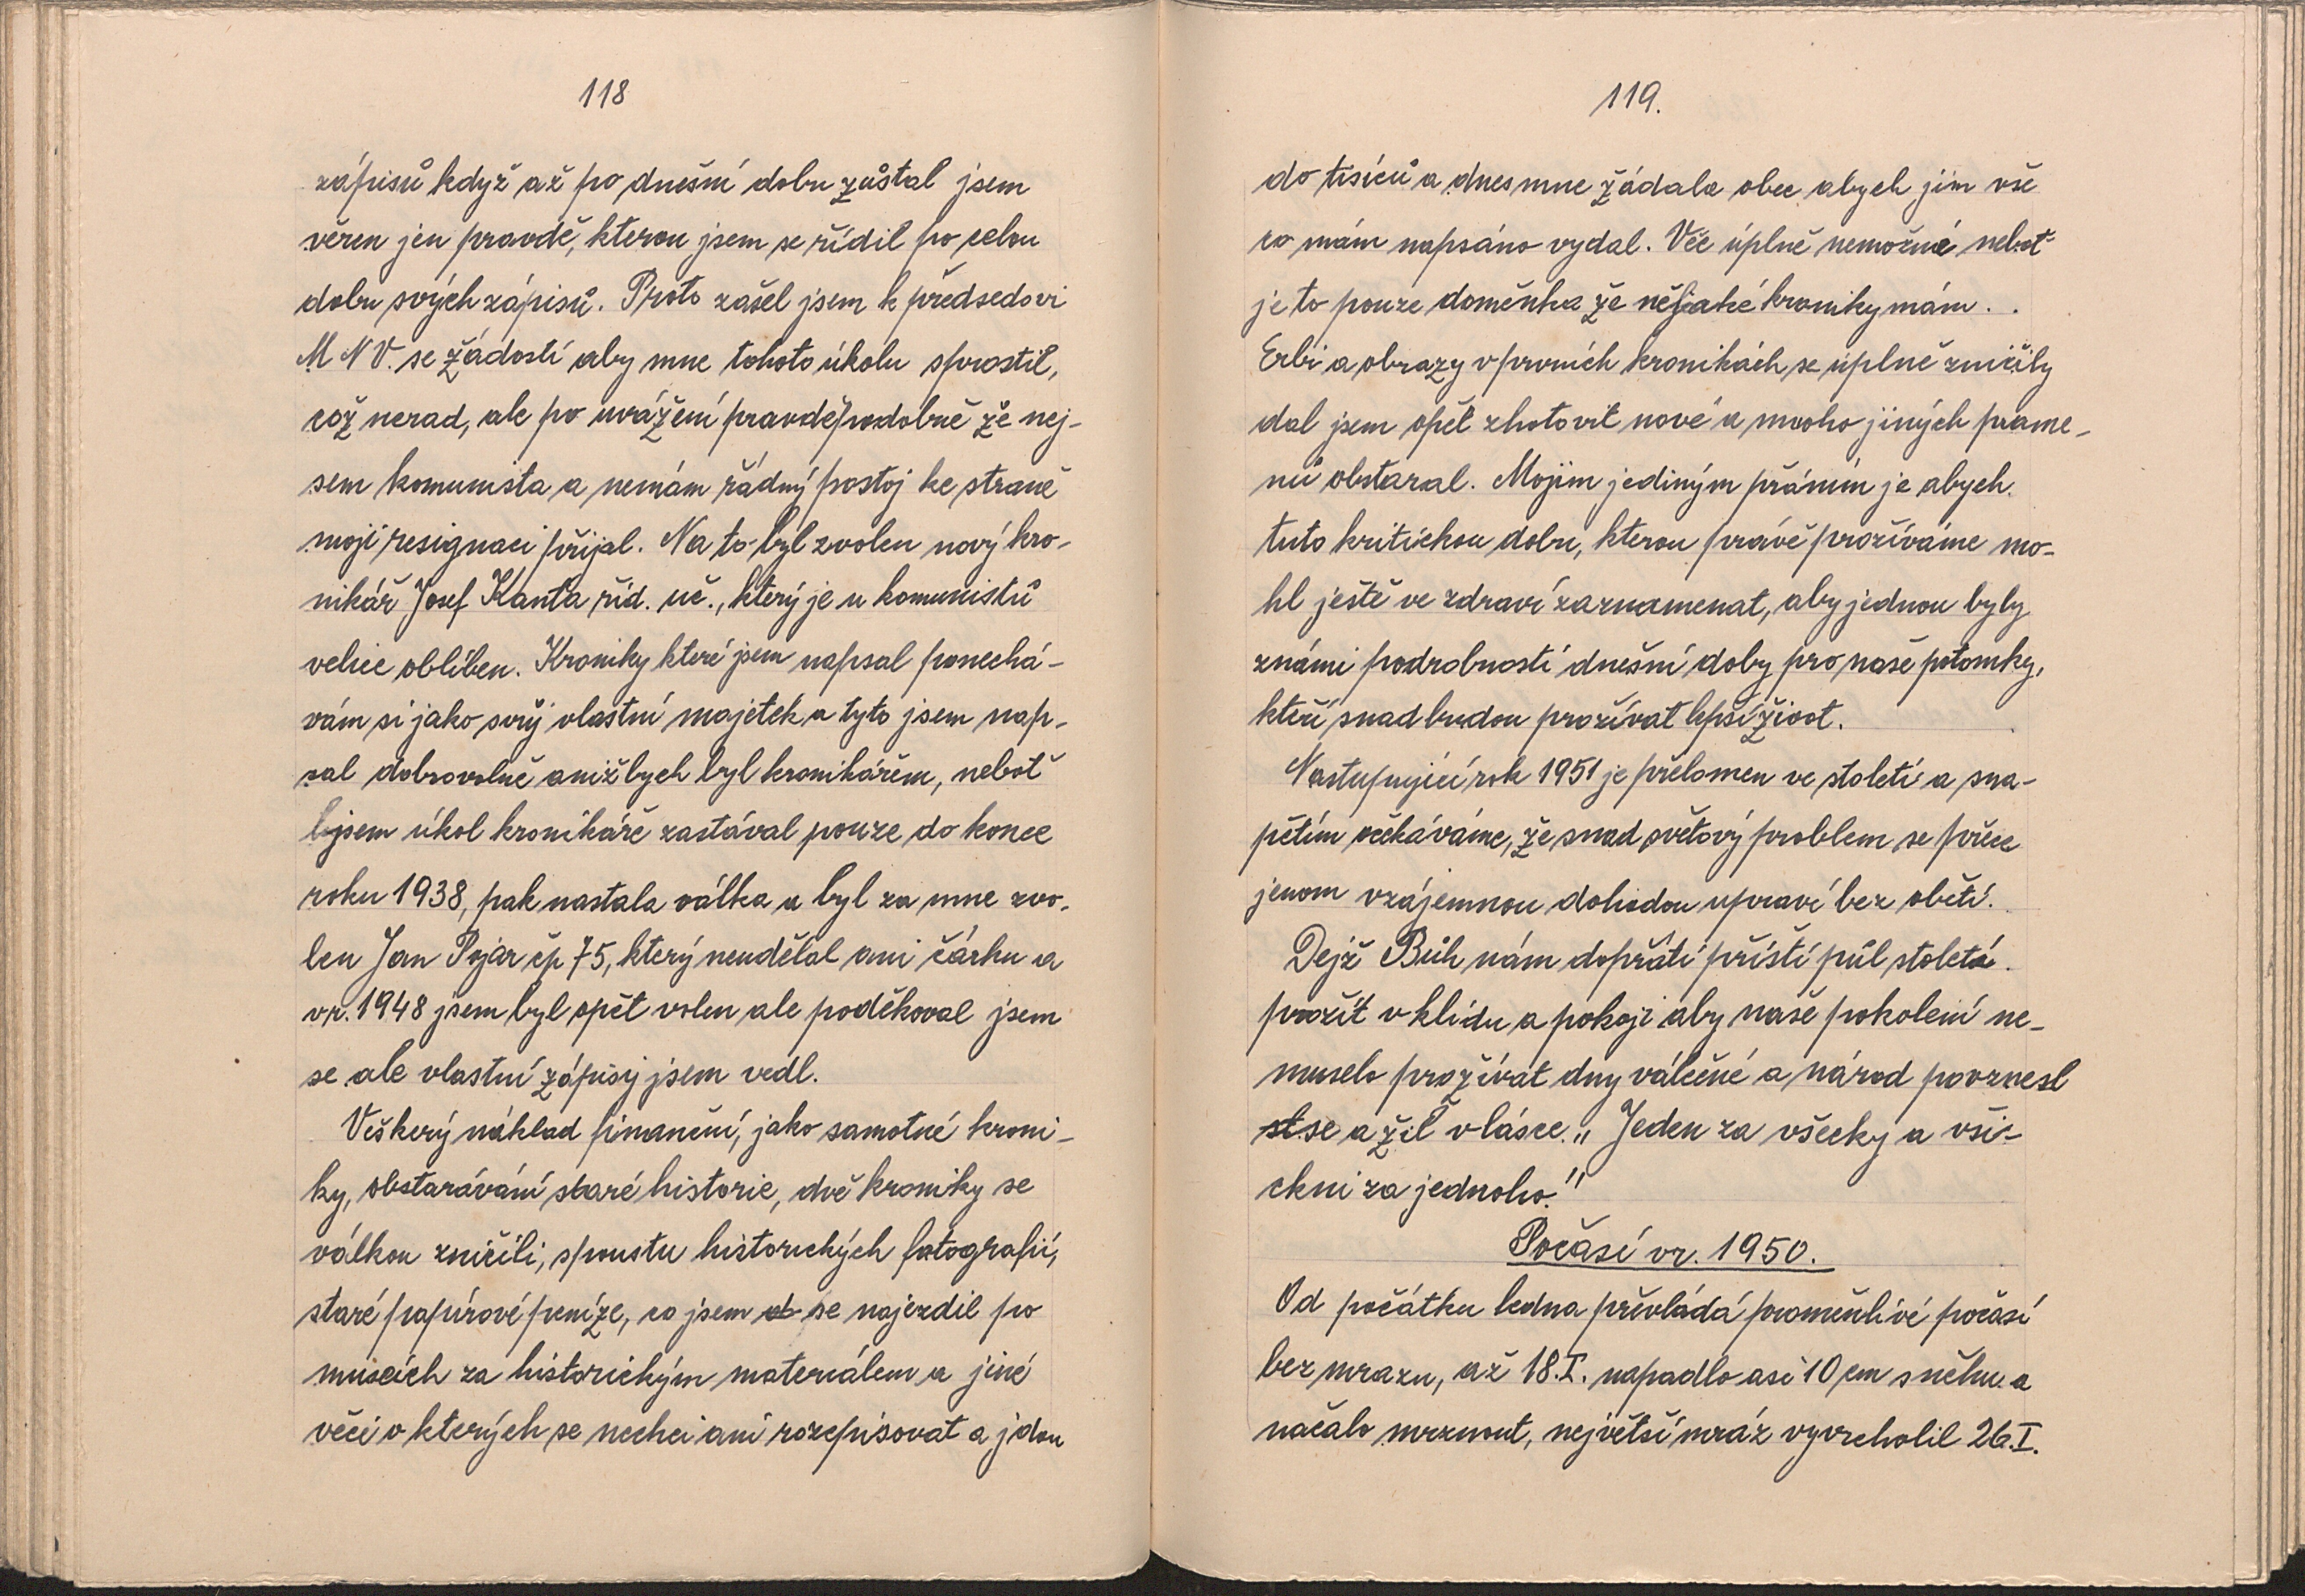 118
zápisů když až po dnešní dobu zůstal jsem
věren jen pravdě, kterou jsem se řídil po celou
dobu svých zápisů. Proto zašel jsem k předsedovi
M N V. se žádostí aby mne tohoto úkolu sprostil,
což nerad, ale po uvážení pravděpodobně že nej-
sem komunista a nemám řádný postoj ke straně
moji resignaci přijal. Na to byl zvolen nový kro-
nikář Josef Kanta říd. uč., který je u komunistů
velice oblíben. Kroniky které jsem napsal ponechá-
vám si jako svůj vlastní majetek a tyto jsem nap-
sal dobrovolně aniž bych byl kronikářem, neboť
jsem úkol kronikáře zastával pouze do konce
roku 1938, pak nastala válka a byl za mne zvo-
len Jan Pojar čp 75, který neudělal ani čárku a
vr. 1948 jsem byl opět volen ale poděkoval jsem
se ale vlastní zápisy jsem vedl.
Veškerý náklad finanční, jako samotné kroni-
ky, obstarávání staré historie, dvě kroniky se
válkou zničili, spoustu historických fotografií,
staré papírové peníze, co jsem se najezdil po
museích za historickým materiálem a jiné
věci o kterých se nechci ani rozepisovat a jdou
119.
do tisíců a dnes mne žádala obec abych jim vše
co mám napsáno vydal. Věc úplně nemožná neboť
je to pouze doměnka že nějaké kroniky mám . .
Erbi a obrazy v prvních kronikách se úplně zničily
dal jsem opět zhotovit nové a mnoho jiných prame-
nů obstaral. Mojim jediným přáním je abych
tuto kritickou dobu, kterou právě prožíváme mo-
hl ještě ve zdraví zaznamenat, aby jednou byly
známi podrobnosti dnešní doby pro naše potomky,
kteří snad budou prožívat lepší život.
Nastupující rok 1951 je přelomen ve století a sna-
pětím očekáváme, že snad světový problem se přece
jenom vzájemnou dohodou upraví bez obětí.
Dejž Bůh nám dopřáti příští půl století
prožít v klidu a pokoji aby naše pokolení ne-
muselo prožívat dny válečné a národ povznesl
st se a žil v lásce. „Jeden za všecky a vši-
ckni za jednoho."
Počasí vr. 1950.
Od počátku ledna převládá proměnlivé počasí
bez mrazu, až 18.I. napadlo asi 10 cm sněhu a
načalo mrznout, největší mráz vyvrcholil 26.I.